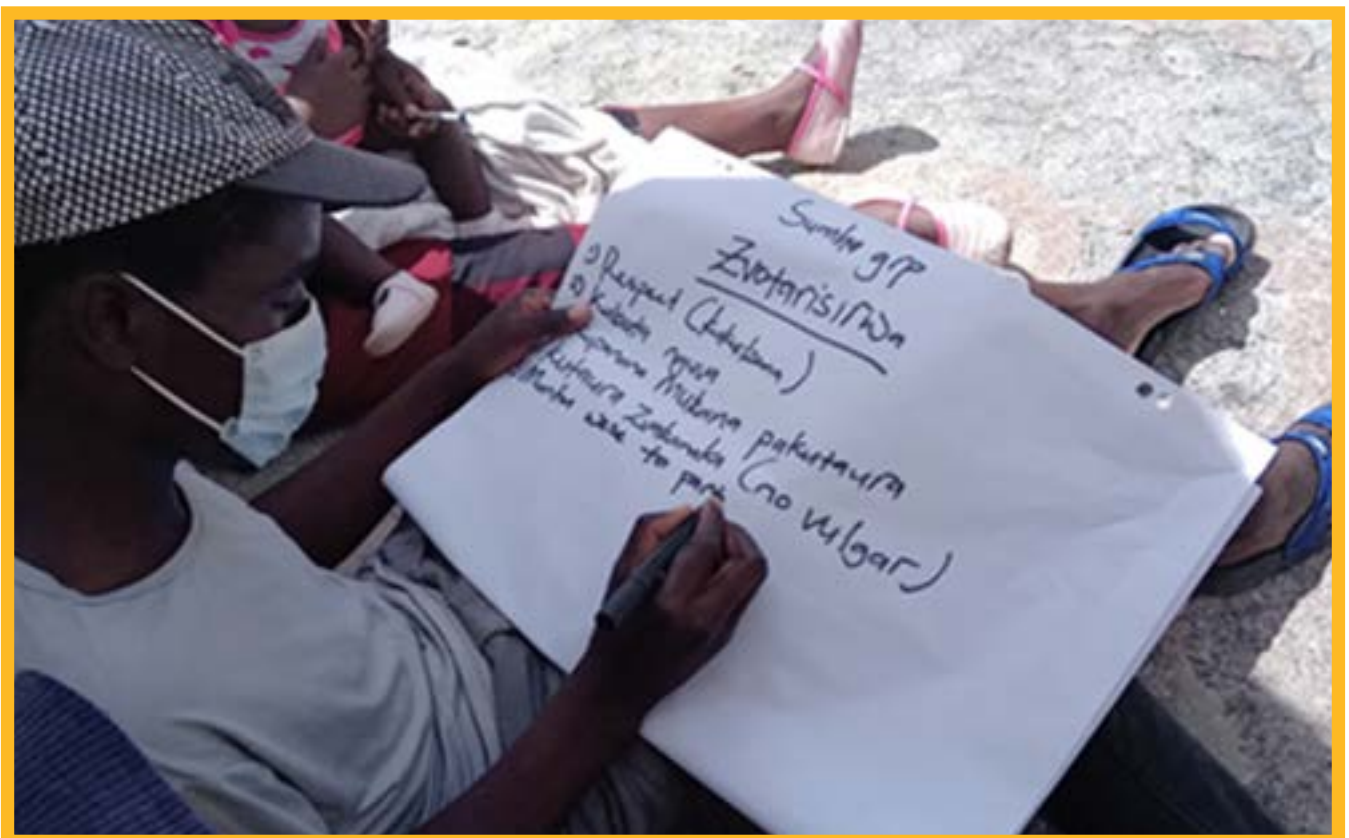 grp
Zvotarisirwa
Respect (kukudzana)
Kubata nguva
Mubana pakutaura
Kutaura Zvakanaka (no vulgar)
Munhu wese to part